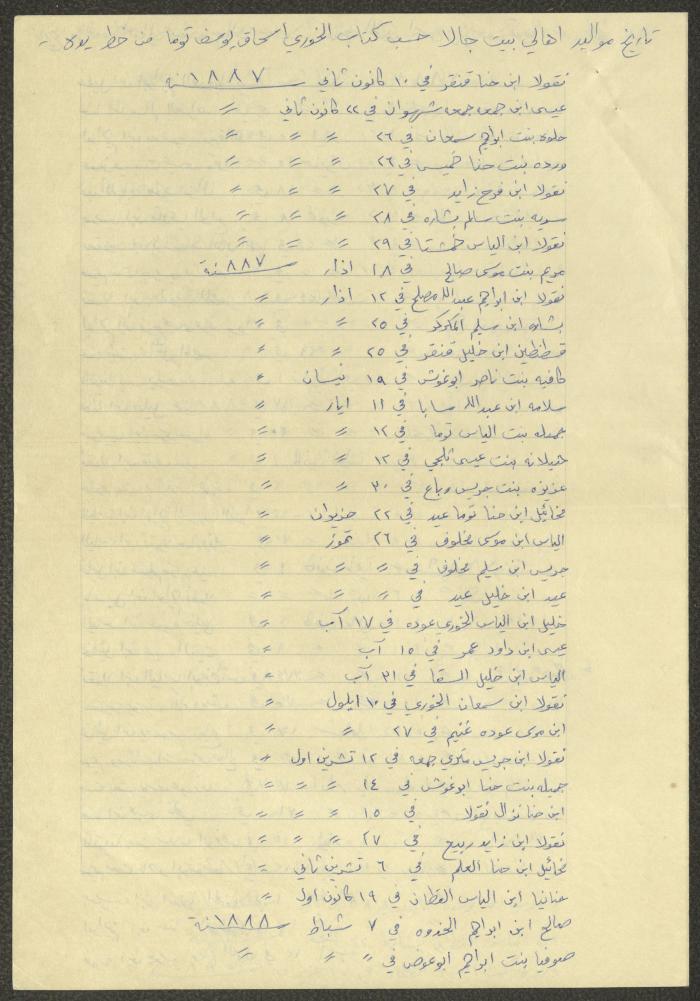 تاريخ مواليد اهالي بيت جالا حسب كتاب الخوري اسحاق يوسف توما من خط يده
نقولا ابن حنا قنقر في ١٠ كانون ثاني سنة ١٨٨٧
عيسى ابن جمعه جمعه شهوان في ٢٢ كانون ثاني 〃
حلوه بنت ابراهيم سمعان في ٢٦ 〃 〃 〃
ورده بنت حنا خميس في ٢٦ 〃 〃 〃
نقولا ابن فرح زايد في ٢٧ 〃 〃 〃
سريه بنت سالم بشاره في ٢٨ 〃 〃 〃
نقولا ابن الياس خمشتا في ٢٩ 〃 〃 〃
مريم بنت موسى صالح في ١٨ اذار سنة ٨٨٧
نقولا ابن ابراهيم عبدالله مصلح في ١٢ اذار 〃
بشاره ابن سليم الكركر في ٢٥ 〃 〃
قسطنطين ابن خليل قنقر في ٢٥ 〃 〃
كافيه بنت ناصر ابوغوش في ١٩ نيسان 〃
سلامه ابن عبدالله سابا في ١١ ايار 〃
جميله بنت الياس توما في ١٢ 〃 〃
حنيلانه بنت عيسى ثلجي في ١٢ 〃 〃
عزيزه بنت جريس رباع في ٣٠ 〃 〃
مخائيل ابن حنا توما عيد في ٢٢ حزيران 〃
الياس ابن موسى مخلوف في ٢٦ تموز 〃
جريس ابن سليم مخلوف في 〃 〃 〃
عيد ابن خليل عيد في 〃 〃 〃
خليل ابن الياس الخوري عوده في ١٧ آب 〃
عيسى ابن داود عمر في ١٥ آب 〃
الياس ابن خليل السقا في ٣١ آب 〃
نقولا ابن سمعان الخوري في ١٠ ايلول 〃
ابن موسى عوده غنيم في ٢٧ 〃 〃
نقولا ابن جريس متري جمعه في ١٢ تشرين اول 〃
جميله بنت حنا ابوغوش في ١٤ 〃 〃 〃
ابن حنا نزال نقولا في ١٥ 〃 〃 〃
نقولا ابن زايد ربيع في ٢٧ 〃 〃 〃
مخائيل ابن حنا العلم في ٦ تشرين ثاني 〃
حنانيا ابن الياس القطان في ١٩ كانون اول 〃
صالح ابن ابراهيم الحذوه في ٧ شباط سنة ١٨٨٨
صوفيا بنت ابراهيم ابوعوض في 〃 〃 〃